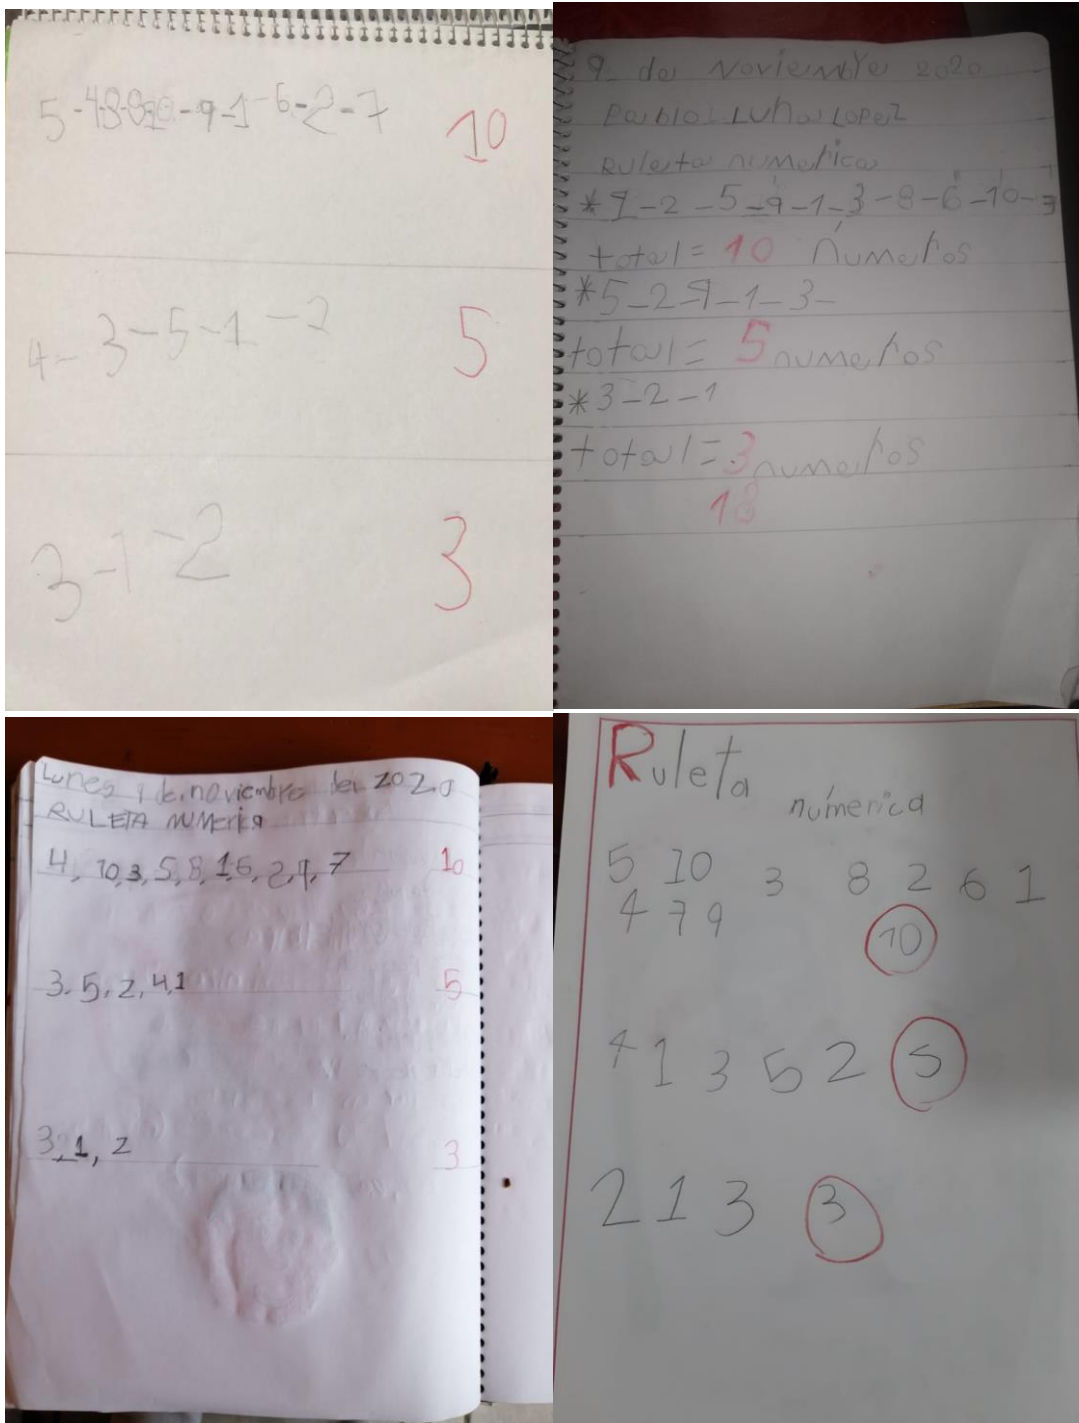 5-4-3-8-10-9-1-6-2-7 10
4-3-5-1-2 5
3-1-2 3
9 de Noviembre 2020
Pablo Luna Lopez
Ruleta numerica
-2-5-9-1-3-8-6-10-
total= 10 números
*5-2-4-1-3-
total= 5 numeros
*3-2-1
total=3 numeros
18
Lunes 9 de noviembre del 2020
RULETA NUMerica
4, 10,3,5,8,1,6,2,9,7 10
3,5,2,4,1 5
3,1,2 3
Ruleta
númerica
5 10 3 8 2 6 1
4 7 9
10
4 1 3 5 2 5
2 1 3 3